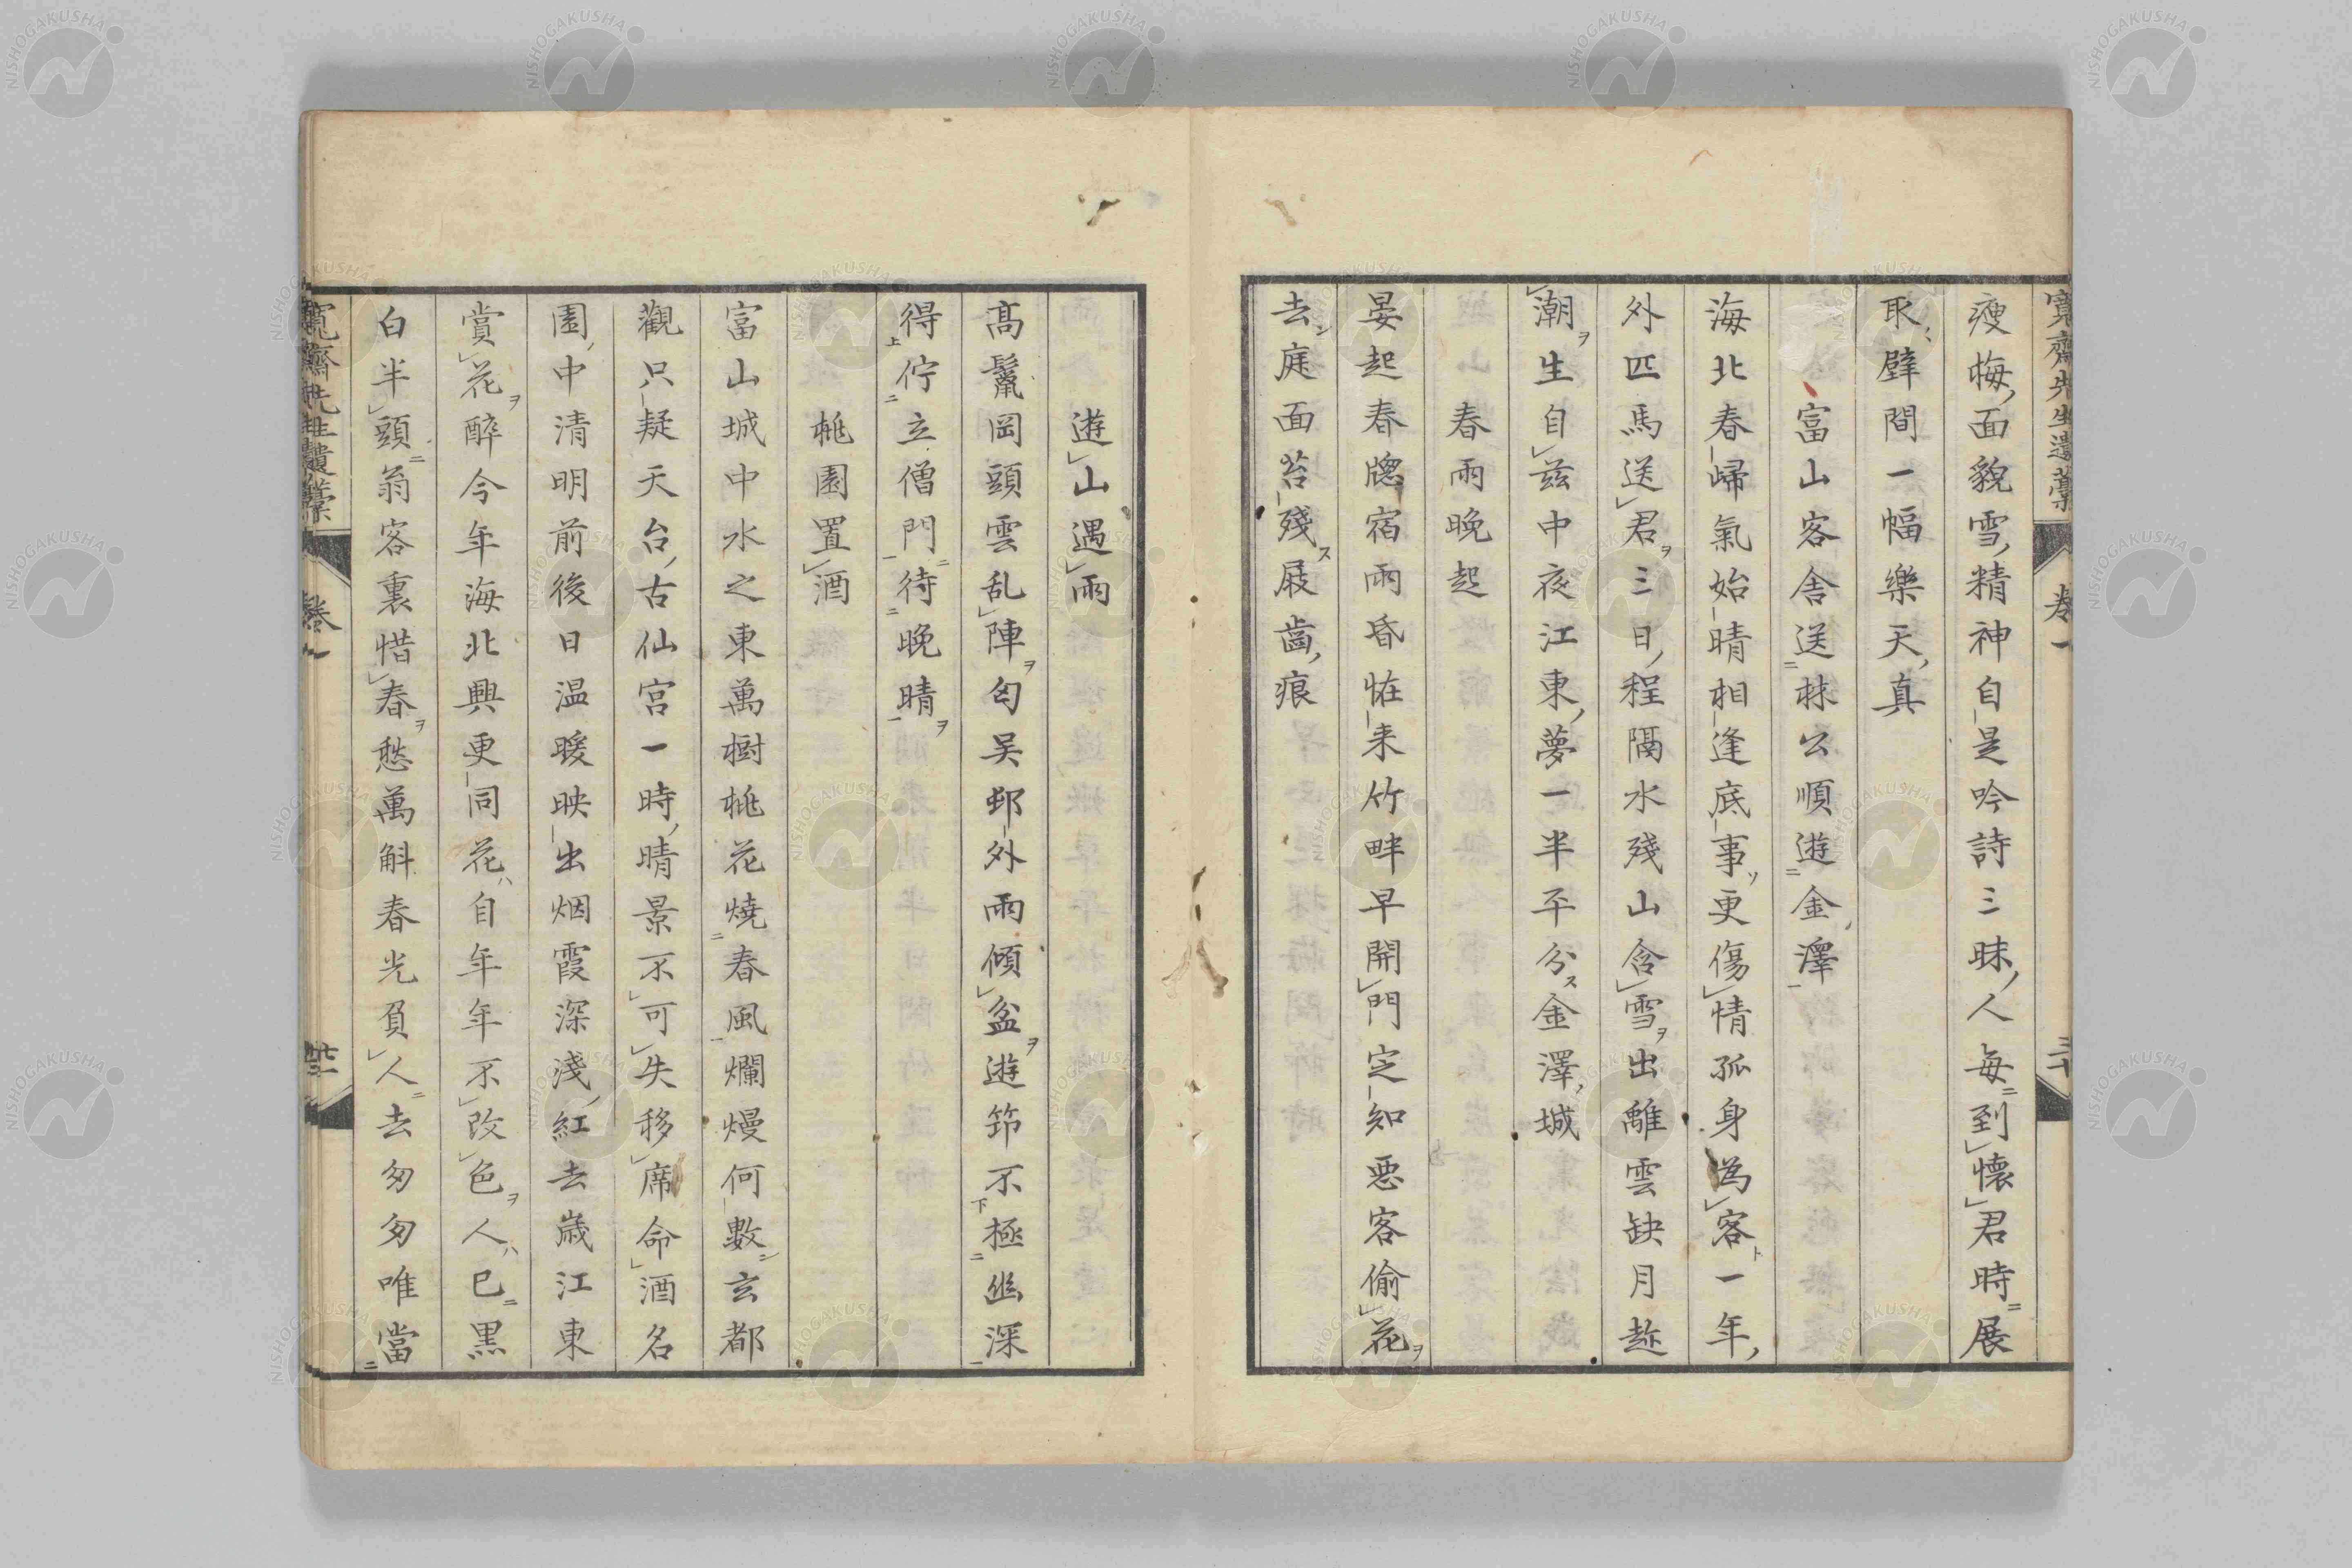 寬齋先生遺藁 卷一 三十
瘦梅面貌雪精神自是吟詩三昧人每到懷君時展
取壁間一幅樂天真
富山客舎送林公順遊金澤
海北春歸氣始晴相逢底事更傷情孤身為客一年
外匹馬送君三日程隔水殘山含雪出離雲缺月趂
潮生自茲中夜江東夢一半平分金澤城
春雨晚起
晏起春牕宿雨昏恠来竹畔早開門定知惡客偷花
去庭面苔殘屐齒痕
遊山遇雨
髙鬟岡頭雲乱陣匂吴邨外雨傾盆遊笻不極幽深
得佇立僧門待晚晴
桃園置酒
富山城中水之東萬樹桃花燒春風爛熳何數玄都
觀只疑天台古仙宮一時晴景不可失移席命酒名
園中清明前後日温暖映出烟霞深淺紅去歳江東
賞花醉今年海北興更同花自年年不改色人已黒
白半頭翁客裏惜春愁萬斛春光負人去匆匆唯當
寬齋先生遺藁 卷一
NISHOGAKUSHA